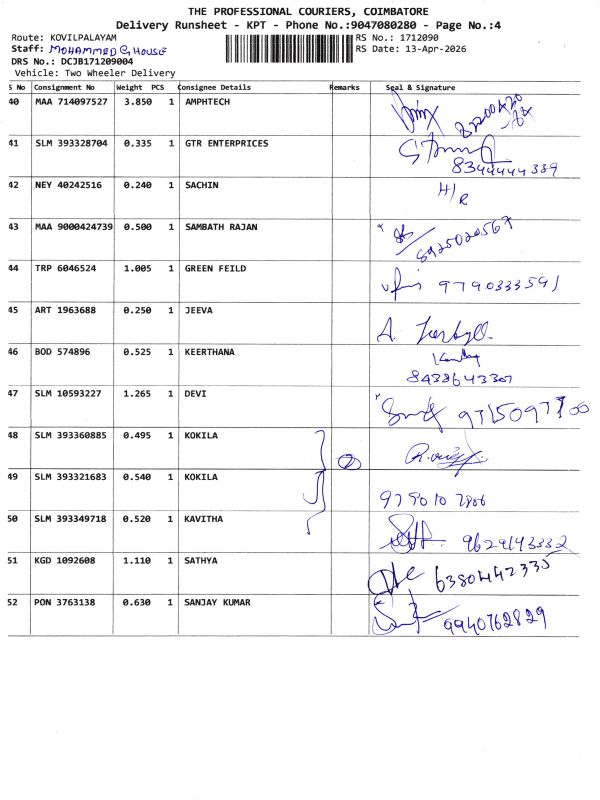 THE PROFESSIONAL COURIERS, COIMBATORE
Delivery Runsheet - KPT - Phone No.:9047080280 - Page No.:4
Route: KOVILPALAYAM RS No.: 1712090
Staff: MOHAMMED GHOUSE RS Date: 13-Apr-2026
DRS No.: DCJB171209004
Vehicle: Two Wheeler Delivery
S No Consignment No Weight PCS Consignee Details Remarks Seal & Signature
40 MAA 714097527 3.850 1 AMPHTECH
41 SLM 393328704 0.335 1 GTR ENTERPRICES
8344444339
42 NEY 40242516 0.240 1 SACHIN H/R
43 MAA 9000424739 0.500 1 SAMBATH RAJAN
8925020567
44 TRP 6046524 1.005 1 GREEN FEILD
9790333591
45 ART 1963688 0.250 1 JEEVA
46 BOD 574896 0.525 1 KEERTHANA
8438643307
47 SLM 10593227 1.265 1 DEVI
9715097700
48 SLM 393360885 0.495 1 KOKILA 2
49 SLM 393321683 0.540 1 KOKILA
50 SLM 393349718 0.520 1 KAVITHA
9629193332
51 KGD 1092608 1.110 1 SATHYA
6380442335
52 PON 3763138 0.630 1 SANJAY KUMAR
9940762829